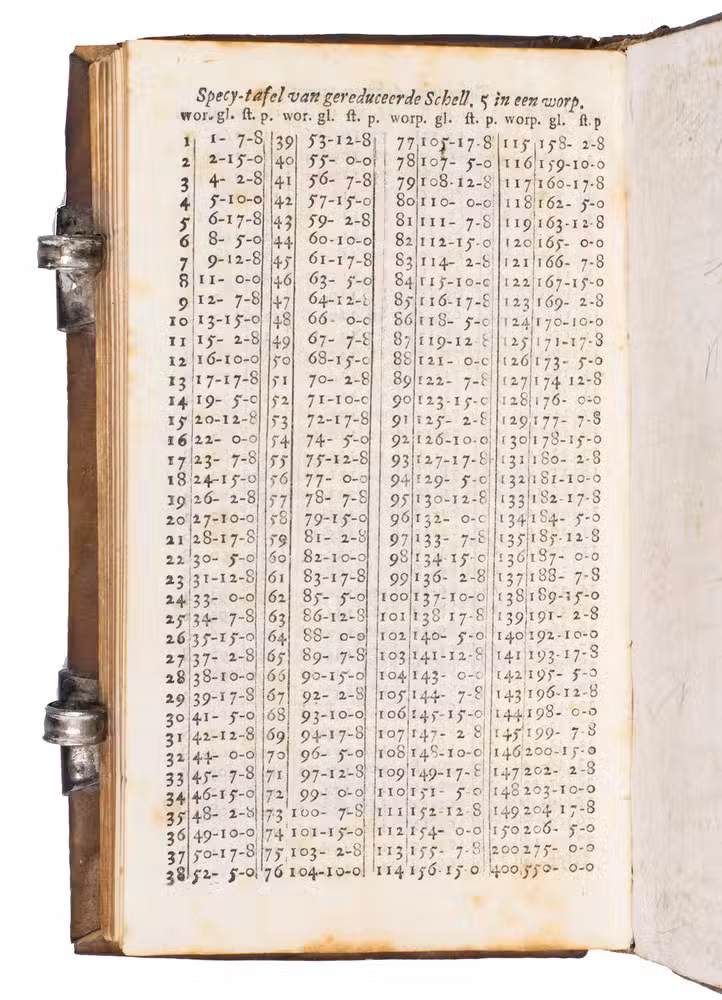 Specy-tafel van gereduceerde Schell. 5 in een worp.
wor. gl. ſt. p. wor. gl. ſt. p. worp. gl. ſt. p. worp. gl. ſt. p
1 1- 7-8 39 53-12-8 77 105-17-8 115 158- 2-8
2 2-15-0 40 55- 0-0 78 107- 5-0 116 159-10-0
3 4- 2-8 41 56- 7-8 79 108-12-8 117 160-17-8
4 5-10-0 42 57-15-0 80 110- 0-0 118 162- 5-0
5 6-17-8 43 59- 2-8 81 111- 7-8 119 163-12-8
6 8- 5-0 44 60-10-0 82 112-15-0 120 165- 0-0
7 9-12-8 45 61-17-8 83 114- 2-8 121 166- 7-8
8 11- 0-0 46 63- 5-0 84 115-10-0 122 167-15-0
9 12- 7-8 47 64-12-8 85 116-17-8 123 169- 2-8
10 13-15-0 48 66- 0-0 86 118- 5-0 124 170-10-0
11 15- 2-8 49 67- 7-8 87 119-12 8 125 171-17-8
12 16-10-0 50 68-15-0 88 121- 0-0 126 173- 5-0
13 17-17-8 51 70- 2-8 89 122- 7-8 127 174 12-8
14 19- 5-0 52 71-10-0 90 123-15-0 128 176- 0-0
15 20-12-8 53 72-17-8 91 125- 2-8 129 177- 7-8
16 22- 0-0 54 74- 5-0 92 126-10-0 130 178-15-0
17 23- 7-8 55 75-12-8 93 127-17-8 131 180- 2-8
18 24-15-0 56 77- 0-0 94 129- 5-0 132 181-10-0
19 26- 2-8 57 78- 7-8 95 130-12-8 133 182-17-8
20 27-10-0 58 79-15-0 96 132- 0-0 134 184- 5-0
21 28-17-8 59 81- 2-8 97 133- 7-8 135 185-12-8
22 30- 5-0 60 82-10-0 98 134 15-0 136 187- 0-0
23 31-12-8 61 83-17-8 99 136- 2-8 137 188- 7-8
24 33- 0-0 62 85- 5-0 100 137-10-0 138 189-15-0
25 34- 7-8 63 86-12-8 101 138 17-8 139 191- 2-8
26 35-15-0 64 88- 0-0 102 140- 5-0 140 192-10-0
27 37- 2-8 65 89- 7-8 103 141-12-8 141 193-17-8
28 38-10-0 66 90-15-0 104 143- 0-0 142 195- 5-0
29 39-17-8 67 92- 2-8 105 144- 7-8 143 196-12-8
30 41- 5-0 68 93-10-0 106 145-15-0 144 198- 0-0
31 42-12-8 69 94-17-8 107 147- 2 8 145 199- 7-8
32 44- 0-0 70 96- 5-0 108 148-10-0 146 200-15-0
33 45- 7-8 71 97-12-8 109 149-17-8 147 202- 2-8
34 46-15-0 72 99- 0-0 110 151- 5-0 148 203-10-0
35 48- 2-8 73 100- 7-8 111 152-12-8 149 204 17-8
36 49-10-0 74 101-15-0 112 154- 0-0 150 206- 5-0
37 50-17-8 75 103- 2-8 113 155- 7-8 200 275- 0-0
38 52- 5-0 76 104-10-0 114 156-15 0 400 550- 0-0